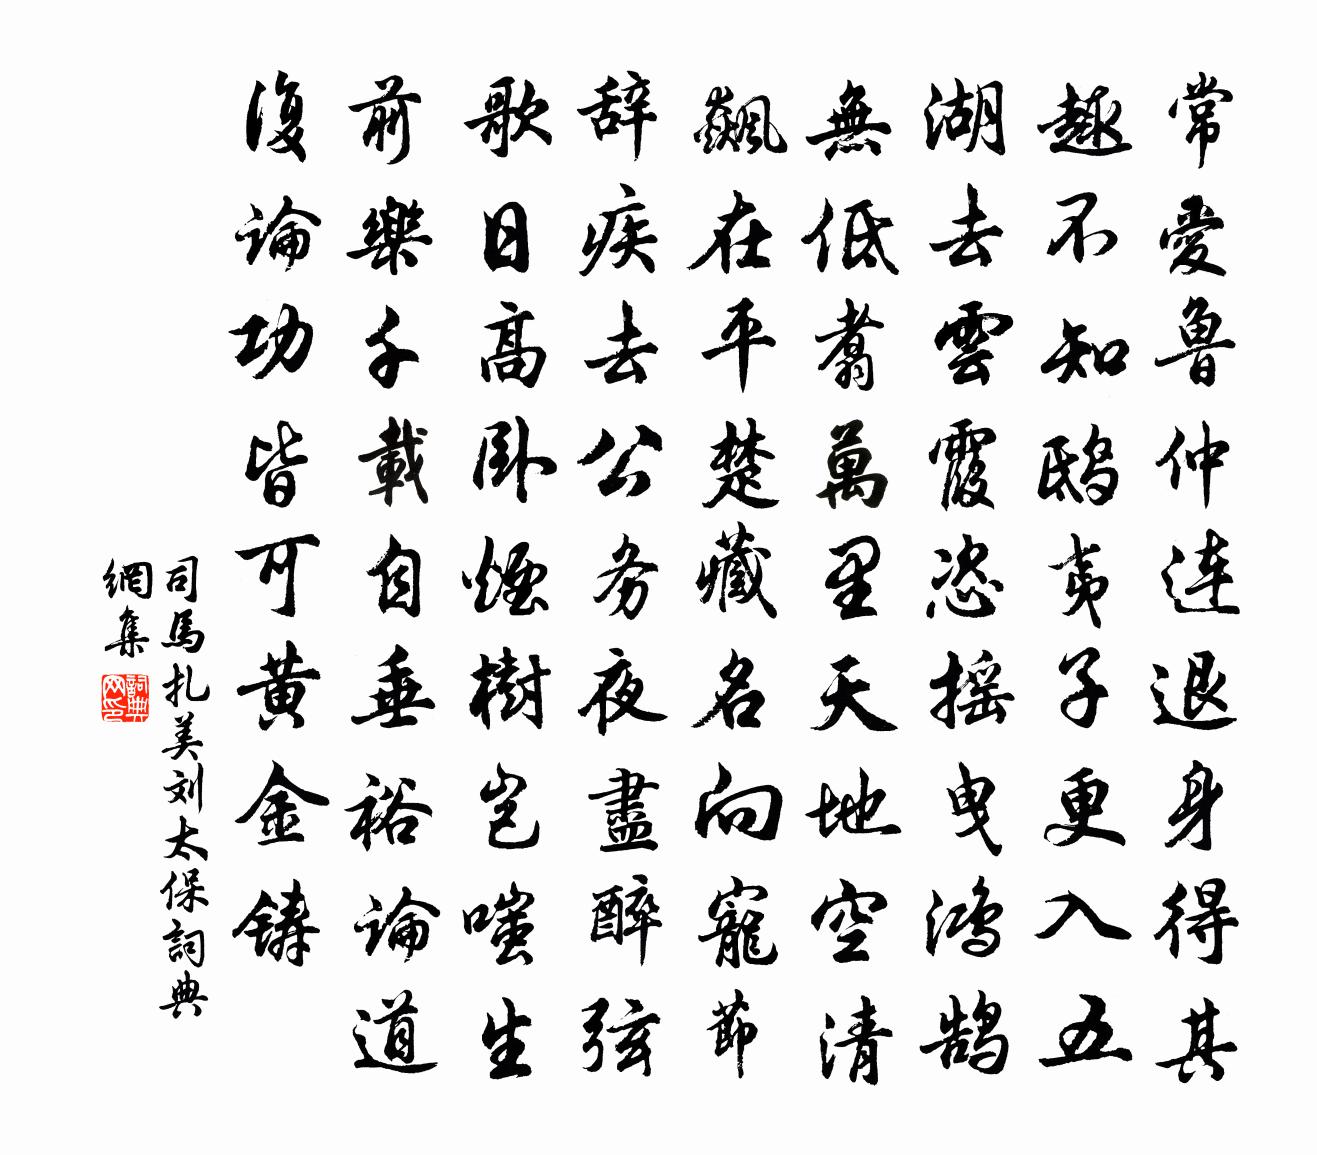 常愛魯仲连退身得其
趣不知鸱夷子更入五
湖去雲霞恣摇曳鸿鹄
無低翥萬里天地空清
飆在平楚藏名向寵節
辞疾去公务夜盡醉弦
歌日高卧煙樹岂嗤生
前樂千載自垂裕論道
復論功皆可黄金鑄
司馬扎美刘太保詞典
網集
詞典网印